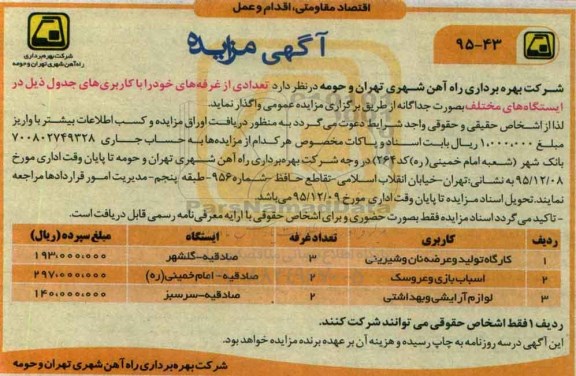 اقتصاد مقاومتی، اقدام و عمل
شرکت بهره برداری
راه آهن شهری تهران و حومه
آگهی مزایده
۹۵-۴۳
شرکت بهره برداری راه آهن شهری تهران و حومه در نظر دارد تعدادی از غرفه های خود را با کاربری های جدول ذیل در
ایستگاه های مختلف بصورت جداگانه از طریق برگزاری مزایده عمومی واگذار نماید.
لذا از اشخاص حقیقی و حقوقی واجد شرایط دعوت می گردد به منظور دریافت اوراق مزایده و کسب اطلاعات بیشتر با واریز
مبلغ ۱،۰۰۰،۰۰۰ ریال بابت اسناد و پاکات مخصوص هر کدام از مزایده ها به حساب جاری ۷۰۰۸۰۲۷۴۹۳۲۸
بانک شهر (شعبه امام خمینی (ره) کد ۲۶۴) در وجه شرکت بهره برداری راه آهن شهری تهران و حومه تا پایان وقت اداری مورخ
۹۵/۱۲/۰۸ به نشانی: تهران-خیابان انقلاب اسلامی-تقاطع حافظ-شماره ۹۵۶-طبقه پنجم-مدیریت امور قراردادها مراجعه
نمایند. تحویل اسناد مزایده تا پایان وقت اداری مورخ ۹۵/۱۲/۰۹ می باشد.
- تاکید می گردد اسناد مزایده فقط بصورت حضوری و برای اشخاص حقوقی با ارایه معرفی نامه رسمی قابل دریافت است.
ردیف کاربری تعداد غرفه ایستگاه مبلغ سپرده (ریال)
۱ کارگاه تولید و عرضه نان و شیرینی ۳ صادقیه-گلشهر ۱۹۳،۰۰۰،۰۰۰
۲ اسباب بازی و عروسک ۲ صادقیه-امام خمینی (ره) ۲۹۷،۰۰۰،۰۰۰
۳ لوازم آرایشی و بهداشتی ۲ صادقیه-سرسبز ۱۴۰،۰۰۰،۰۰۰
ردیف ۱ فقط اشخاص حقوقی می توانند شرکت کنند.
این آگهی در سه روزنامه به چاپ رسیده و هزینه آن بر عهده برنده مزایده خواهد بود.
شرکت بهره برداری راه آهن شهری تهران و حومه